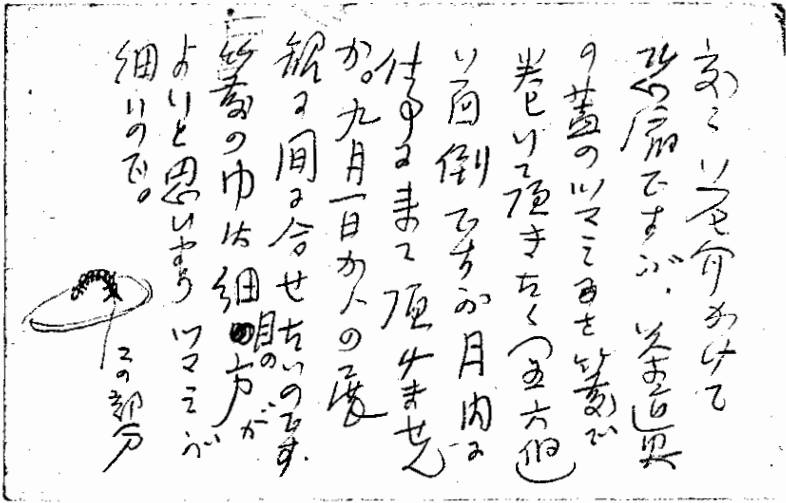 度々御厄介かけて
恐縮ですが、茶道具
の蓋のツマミを籐で
巻いて頂きたく(五六個)
御面倒ですが月内に
仕事に来て頂けません
か。九月一日からの展
観に間に合せたいのです。
籐の巾は細目の方が
よいと思います ツマミが
細いので。
この部分